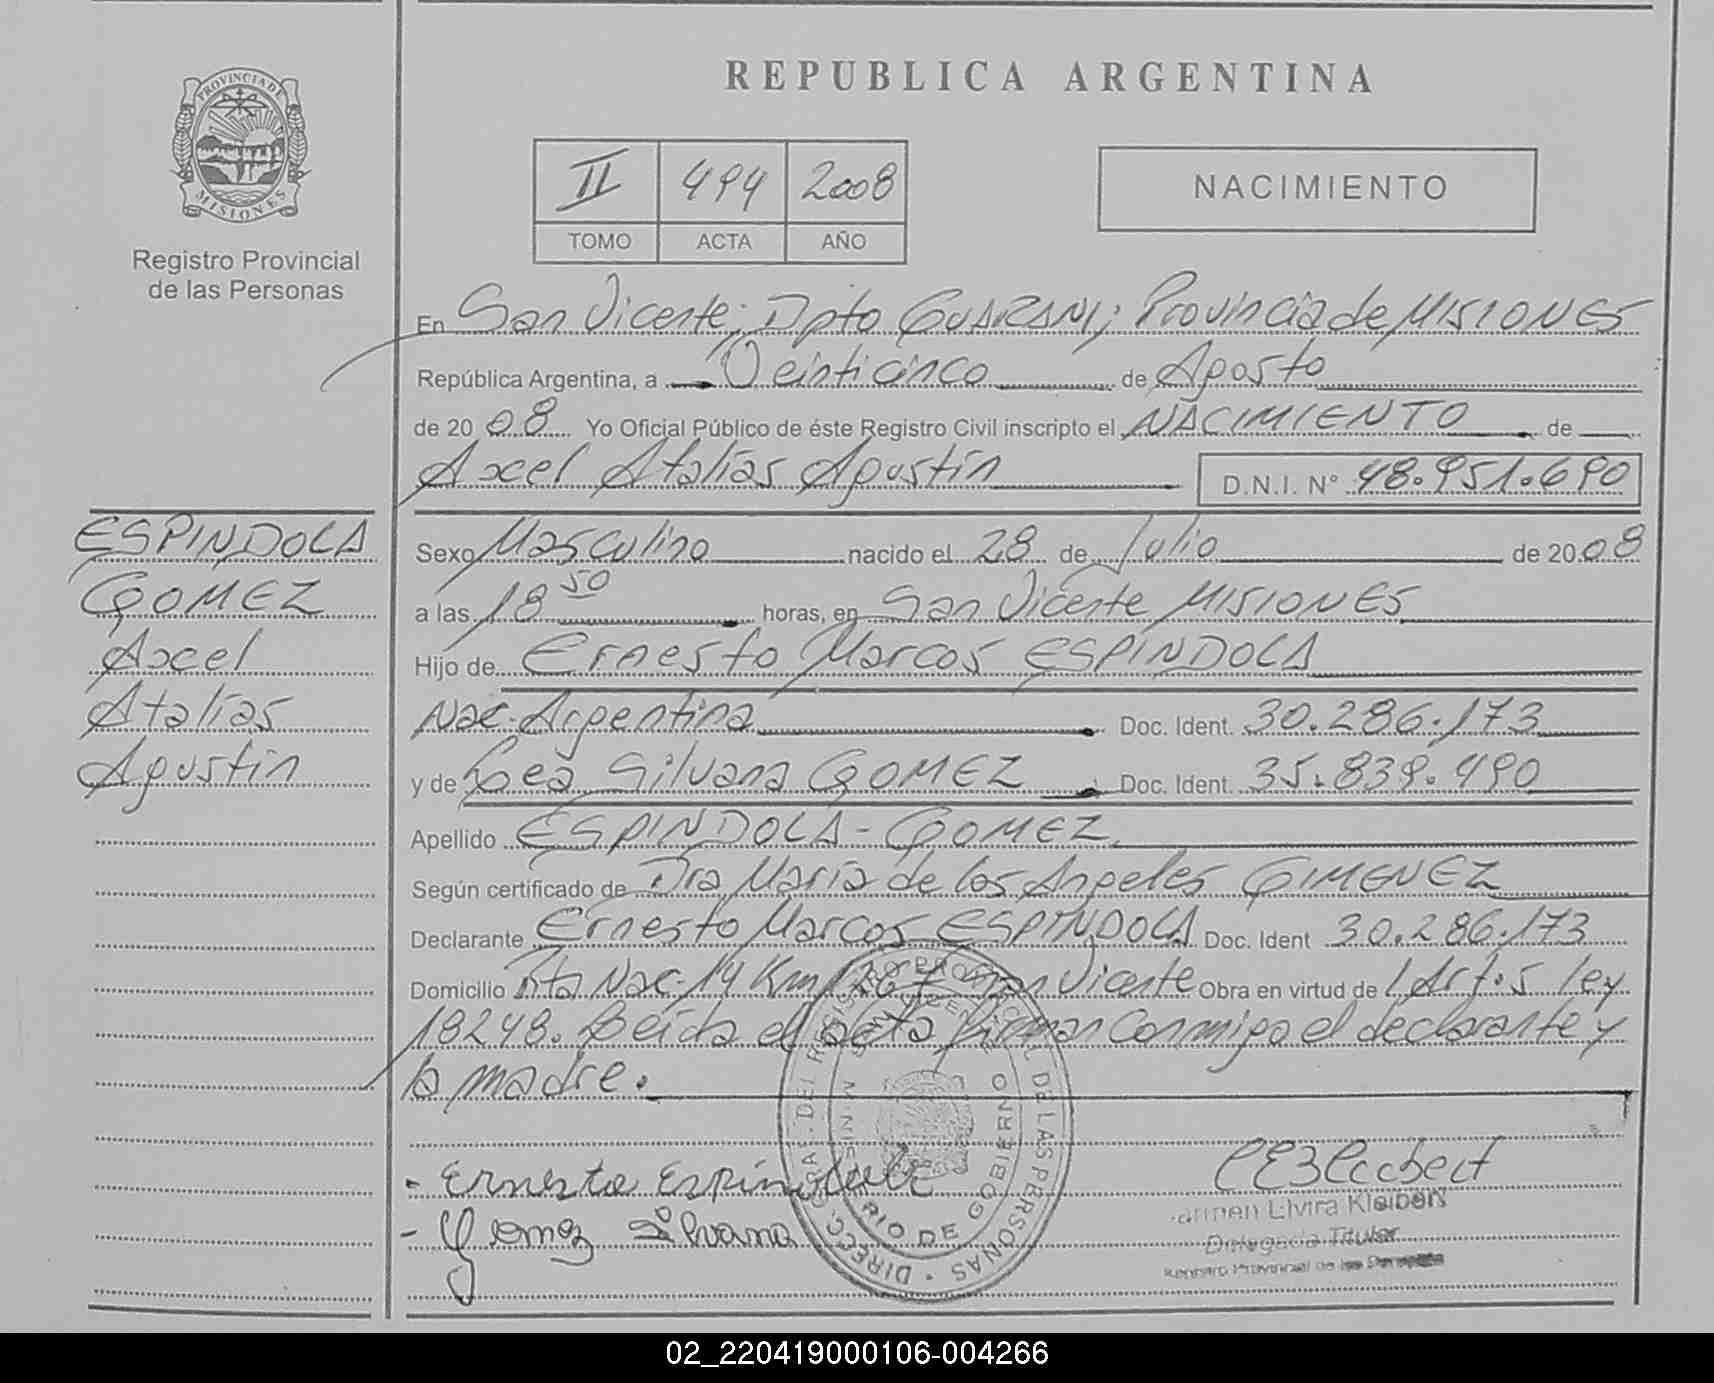 PROVINCIA DE
MISIONES
Registro Provincial
de las Personas
REPUBLICA ARGENTINA
II 494 2008
TOMO ACTA AÑO
NACIMIENTO
En San Vicente; Dpto GUARANI; Provincia de MISIONES
República Argentina, a Veinticinco de Agosto
de 2008 Yo Oficial Público de éste Registro Civil inscripto el NACIMIENTO de
Axel Atalías Agustín D.N.I. N° 48.951.690
ESPINDOLA
GOMEZ
Axel
Atalías
Agustín
Sexo Masculino nacido el 28 de Julio de 2008
a las 18 50 horas, en San Vicente MISIONES
Hijo de Ernesto Marcos ESPINDOLA
Nac. Argentina Doc. Ident. 30.286.173
y de Lea Silvana GOMEZ Doc. Ident. 35.839.490
Apellido ESPINDOLA - GOMEZ.
Según certificado de Dra María de los Angeles GIMENEZ
Declarante Ernesto Marcos ESPINDOLA Doc. Ident 30.286.173
Domicilio Rta Nac. 14 Km 1267 San Vicente Obra en virtud de l Art. 5 ley
18248. Leída el acta firman conmigo el declarante y
la madre.
DIRECC. GRAL. DEL REGISTRO PROVINCIAL DE LAS PERSONAS
RIO DE GOBIERNO
- Ernesto Espindola
- Gomez Silvana
Elvira Kleibert
Delegada Titular
Registro Provincial de las Personas
02_220419000106-004266